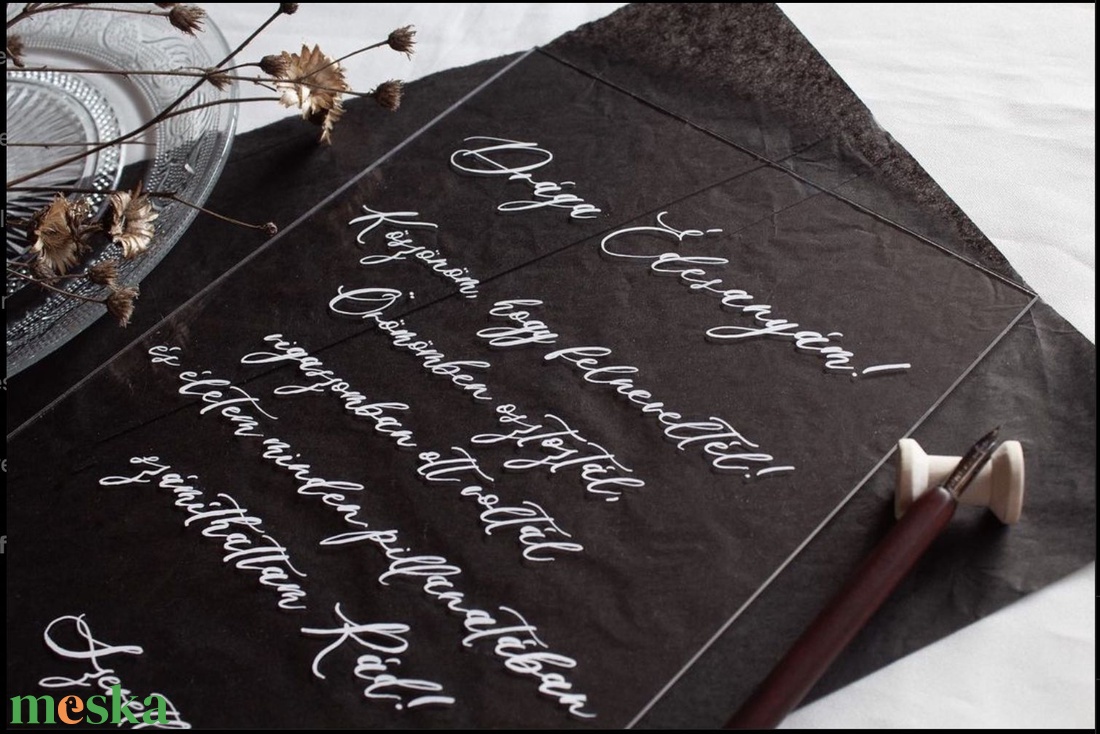 Drága Édesanyám!
Köszönöm, hogy felneveltél!
Örömömben osztoztál,
vigaszomban ott voltál
és életem minden pillanatában
számíthattam Rád!
meska